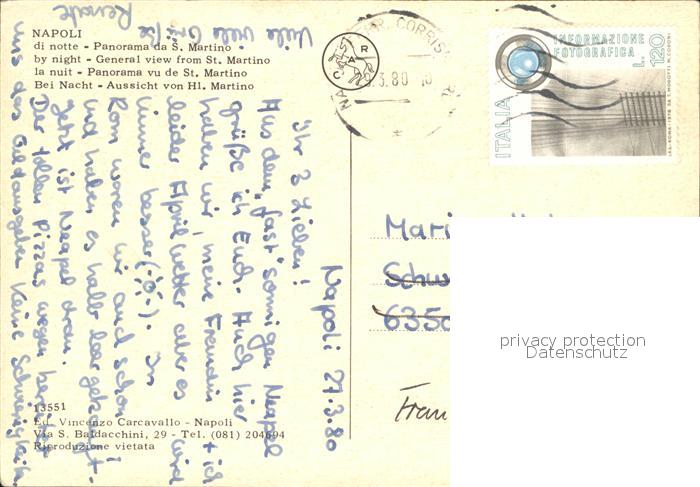 NAPOLI
di notte - Panorama da S. Martino
by night - General view from St. Martino
la nuit - Panorama vu de St. Martino
Bei Nacht - Aussicht von Hl. Martino
NA C.
CORRIS
29.3.80
INFORMAZIONE
FOTOGRAFICA
L. 120
ITALIA
I.P.S.-ROMA-1978
Napoli 27.3.80
Ihr 3 Lieben!
Aus dem „fast" sonnigen Neapel
grüße ich Euch. Auch hier
haben wir, meine Freundin + ich
leider Aprilwetter aber es wird
immer besser (-☼-). In
Rom waren wir auch schon
und haben es halb leer getrampt.
Jetzt ist Neapel dran.
Der tollen Pizzas wegen bereitet
uns das Geldausgeben keine Schwierigkeit.
Viele viele Grüße
Renate
Mari
Schw
6350
Fran
privacy protection
Datenschutz
13551
Ed. Vincenzo Carcavallo - Napoli
Via S. Baldacchini, 29 - Tel. (081) 204694
Riproduzione vietata